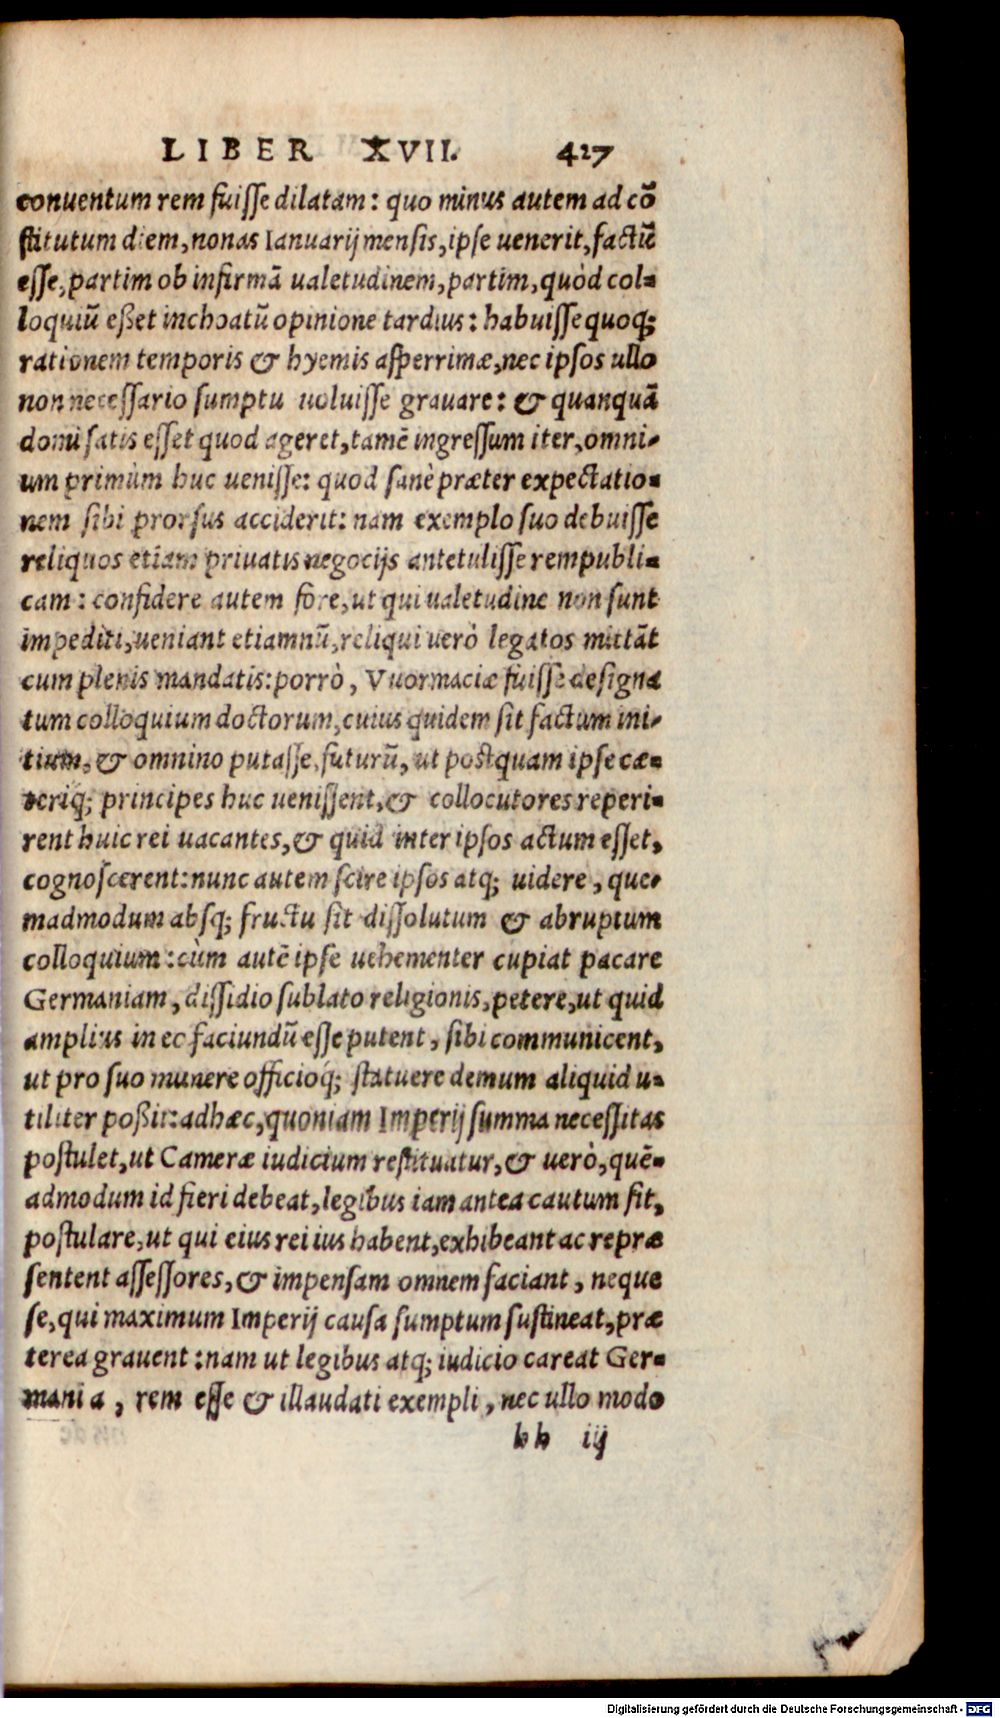 LIBER XVII. 427
conuentum rem fuisse dilatam: quo minus autem ad cõ
stitutum diem, nonas Ianuarij mensis, ipse uenerit, factũ
esse, partim ob infirmã ualetudinem, partim, quòd col-
loquiũ eßet inchoatũ opinione tardius: habuisse quoq;
rationem temporis & hyemis asperrimæ, nec ipsos ullo
non necessario sumptu uoluisse grauare: & quanquã
domi satis esset quod ageret, tamẽ ingressum iter, omni-
um primùm huc uenisse: quod sanè præter expectatio-
nem sibi prorsus acciderit: nam exemplo suo debuisse
reliquos etiam priuatis negocijs antetulisse rempubli-
cam: confidere autem fore, ut qui ualetudine non sunt
impediti, ueniant etiamnũ, reliqui uerò legatos mittãt
cum plenis mandatis: porrò, Vuormaciæ fuisse designa
tum colloquium doctorum, cuius quidem sit factum ini-
tium, & omnino putasse, futurũ, ut postquam ipse cæ-
teriq; principes huc uenissent, & collocutores reperi-
rent huic rei uacantes, & quid inter ipsos actum esset,
cognoscerent: nunc autem scire ipsos atq; uidere, que-
madmodum absq; fructu sit dissolutum & abruptum
colloquium: cùm autẽ ipse uehementer cupiat pacare
Germaniam, dissidio sublato religionis, petere, ut quid
amplius in eo faciundũ esse putent, sibi communicent,
ut pro suo munere officioq; statuere demum aliquid u-
tiliter poßit: adhæc, quoniam Imperij summa necessitas
postulet, ut Cameræ iudicium restituatur, & uerò, quẽ-
admodum id fieri debeat, legibus iam antea cautum sit,
postulare, ut qui eius rei ius habent, exhibeant ac repræ
sentent assessores, & impensam omnem faciant, neque
se, qui maximum Imperij causa sumptum sustineat, præ
terea grauent: nam ut legibus atq; iudicio careat Ger-
mania, rem esse & illaudati exempli, nec ullo modo
bb iij
Digitalisierung gefördert durch die Deutsche Forschungsgemeinschaft - DFG